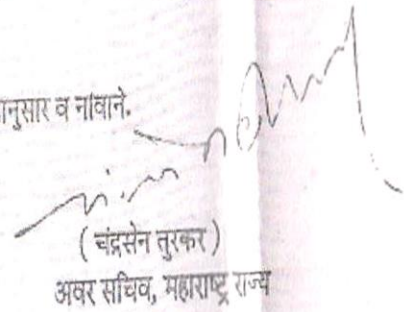 नुसार व नांवाने.
( चंद्रसेन तुरकर )
अवर सचिव, महाराष्ट्र राज्य